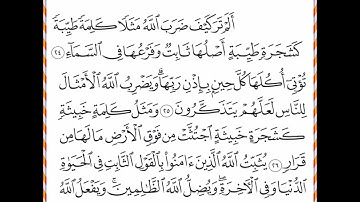 أَلَمۡ تَرَ كَيۡفَ ضَرَبَ ٱللَّهُ مَثَلٗا كَلِمَةٗ طَيِّبَةٗ
كَشَجَرَةٖ طَيِّبَةٍ أَصۡلُهَا ثَابِتٞ وَفَرۡعُهَا فِي ٱلسَّمَآءِ ٢٤
تُؤۡتِيٓ أُكُلَهَا كُلَّ حِينِۭ بِإِذۡنِ رَبِّهَاۗ وَيَضۡرِبُ ٱللَّهُ ٱلۡأَمۡثَالَ
لِلنَّاسِ لَعَلَّهُمۡ يَتَذَكَّرُونَ ٢٥ وَمَثَلُ كَلِمَةٍ خَبِيثَةٖ
كَشَجَرَةٍ خَبِيثَةٍ ٱجۡتُثَّتۡ مِن فَوۡقِ ٱلۡأَرۡضِ مَا لَهَا مِن
قَرَارٖ ٢٦ يُثَبِّتُ ٱللَّهُ ٱلَّذِينَ ءَامَنُواْ بِٱلۡقَوۡلِ ٱلثَّابِتِ فِي ٱلۡحَيَوٰةِ
ٱلدُّنۡيَا وَفِي ٱلۡأٓخِرَةِۖ وَيُضِلُّ ٱللَّهُ ٱلظَّٰلِمِينَۚ وَيَفۡعَلُ ٱللَّهُ